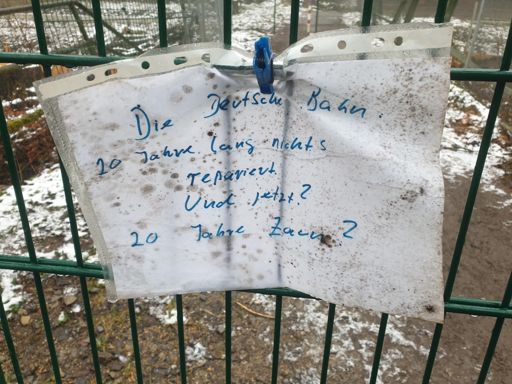 Die Deutsche Bahn.
20 Jahre lang nichts
repariert.
Und jetzt?
20 Jahre Zaun?